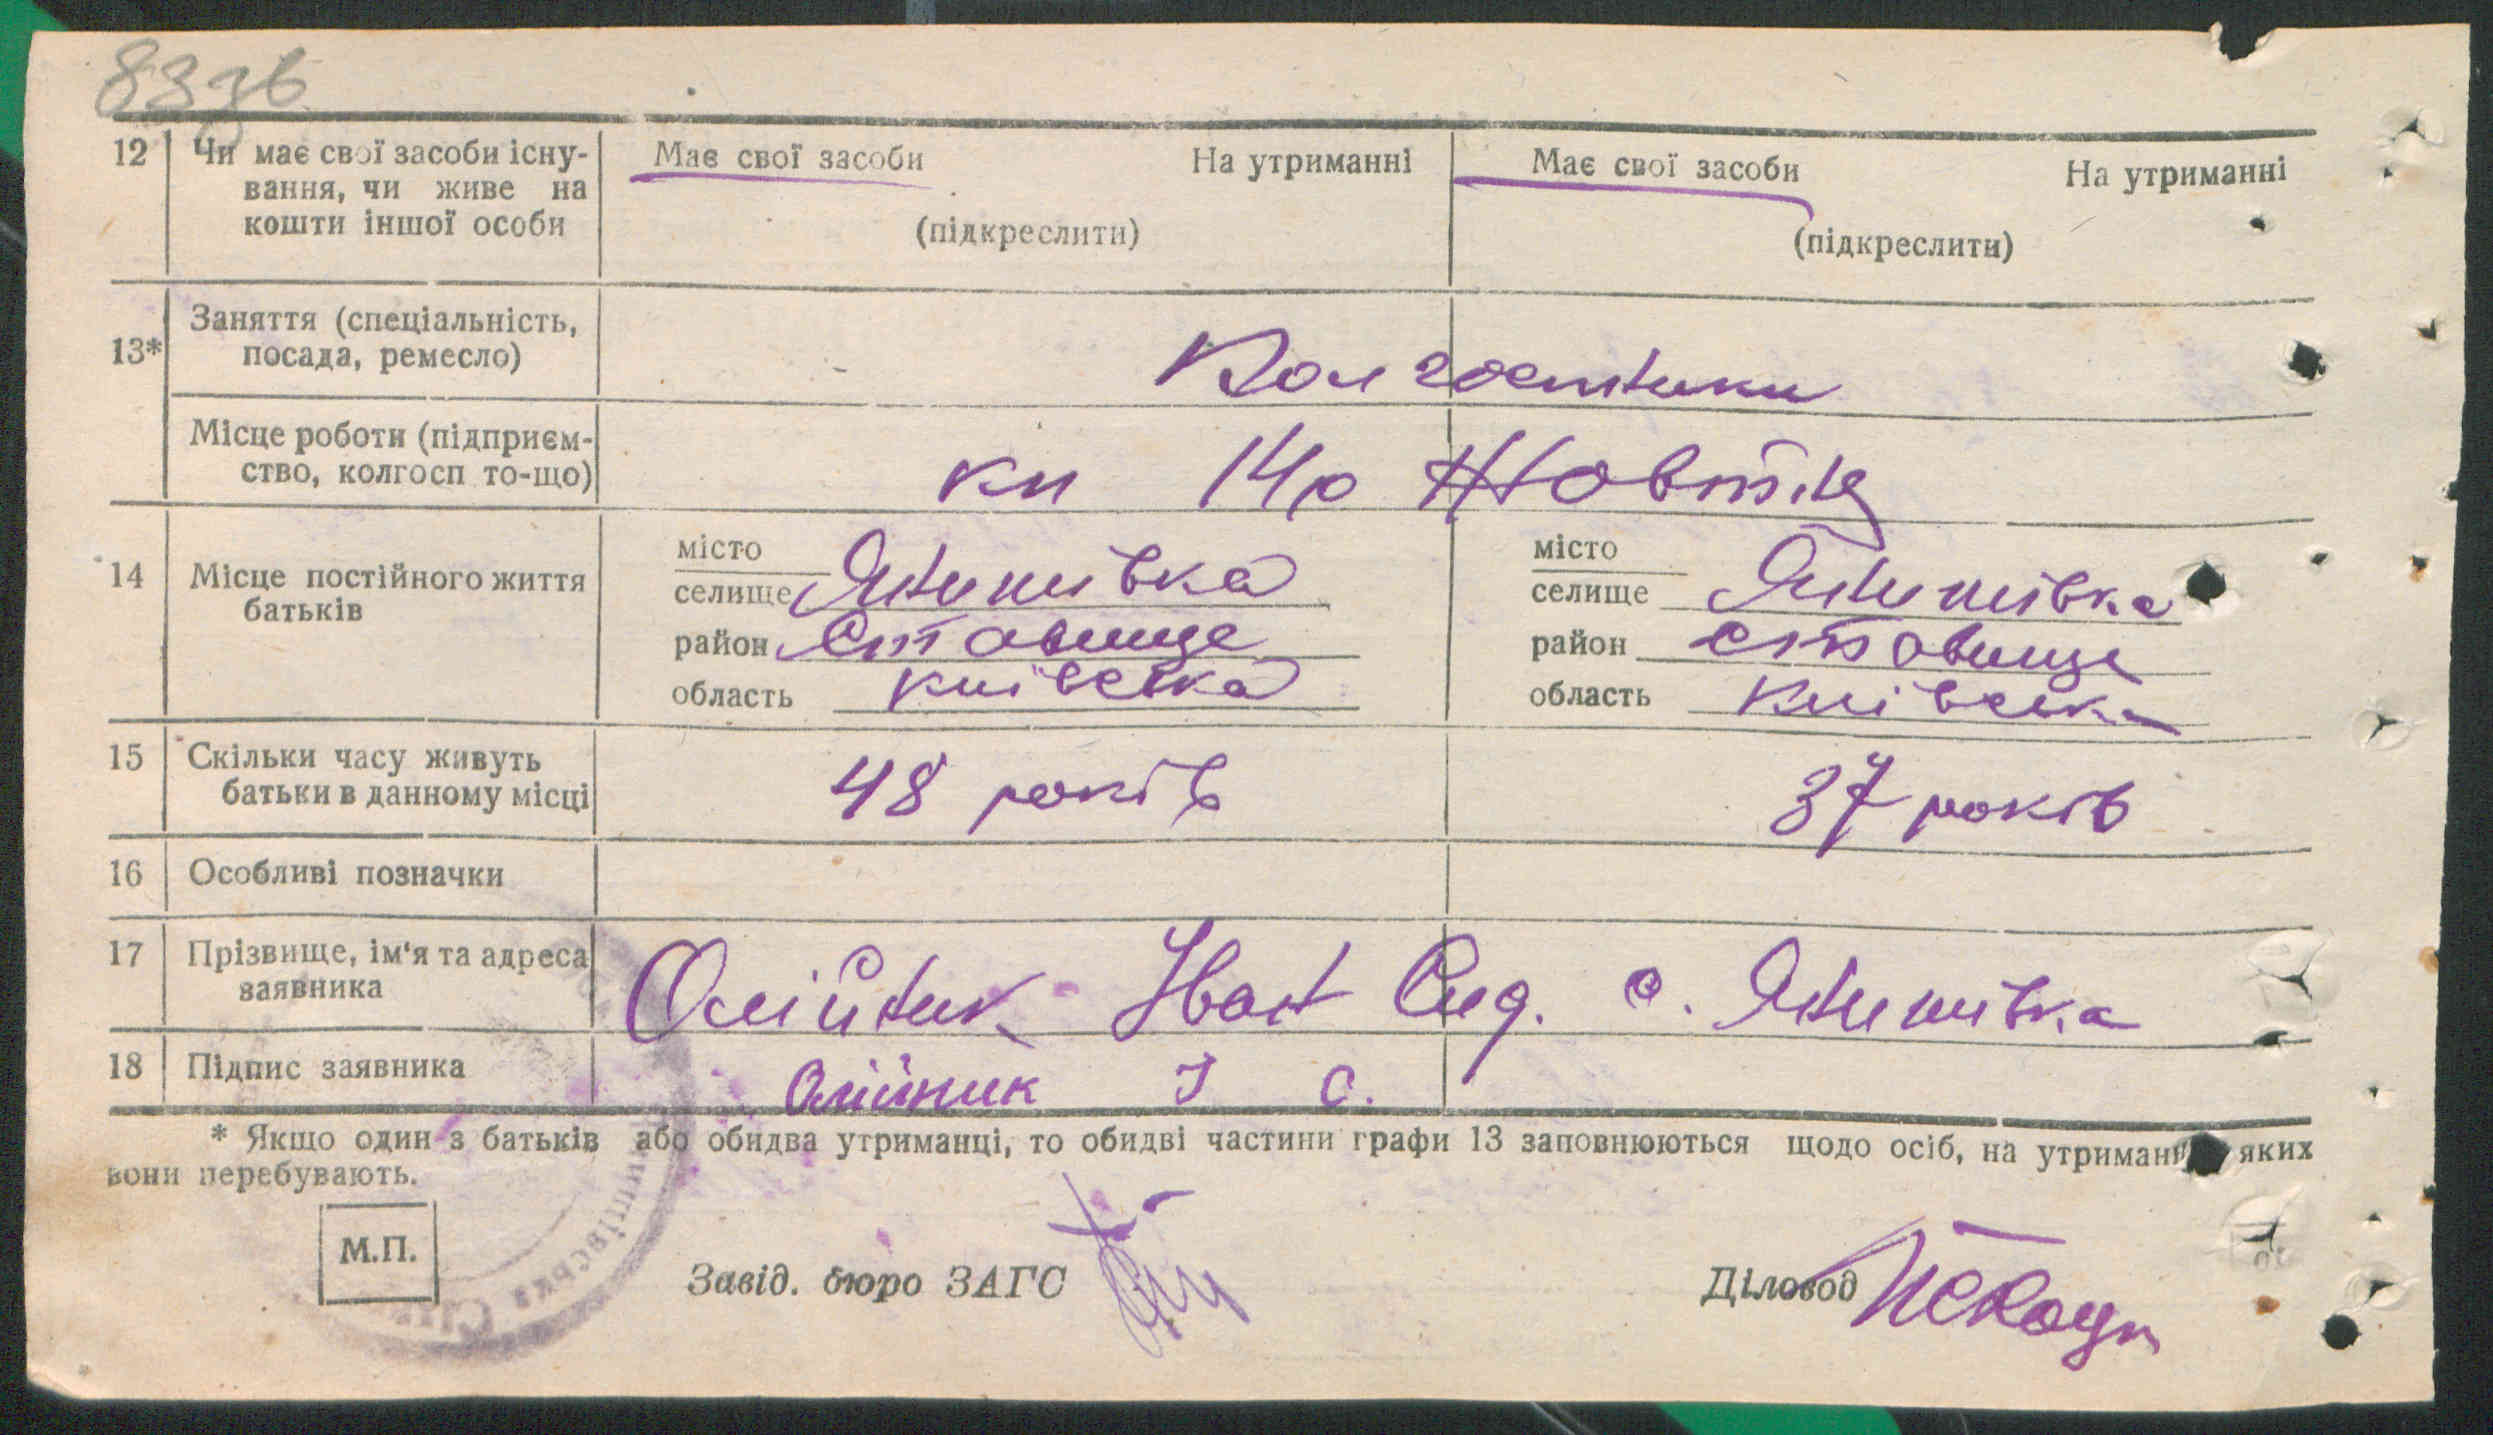 8336
12 Чи має свої засоби існу-
вання, чи живе на
кошти іншої особи
Має свої засоби На утриманні
(підкреслити)
Має свої засоби На утриманні
(підкреслити)
13* Заняття (спеціальність,
посада, ремесло)
Колгоспники
Місце роботи (підприєм-
ство, колгосп то-що)
14р Жовтня
14 Місце постійного життя
батьків
місто
селище Янишівка
район Ставище
область Київська
місто
селище Янишівка
район Ставище
область Київська
15 Скільки часу живуть
батьки в данному місці
48 років
37 років
16 Особливі позначки
17 Прізвище, ім'я та адреса
заявника
Олійник Іван Сид. с. Янишівка
18 Підпис заявника
Олійник І С.
* Якщо один з батьків або обидва утриманці, то обидві частини графи 13 заповнюються щодо осіб, на утриманні яких
вони перебувають.
М.П.
Завід. бюро ЗАГС
Діловод